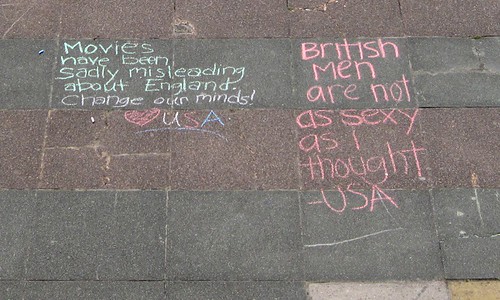 Movies
have been
sadly misleading
about England.
Change our minds!
♥ USA
British
men
are not
as sexy
as i
thought!
-USA